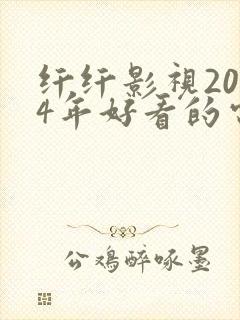 纤纤影视20
4年好看的
公鸡醉啄墨